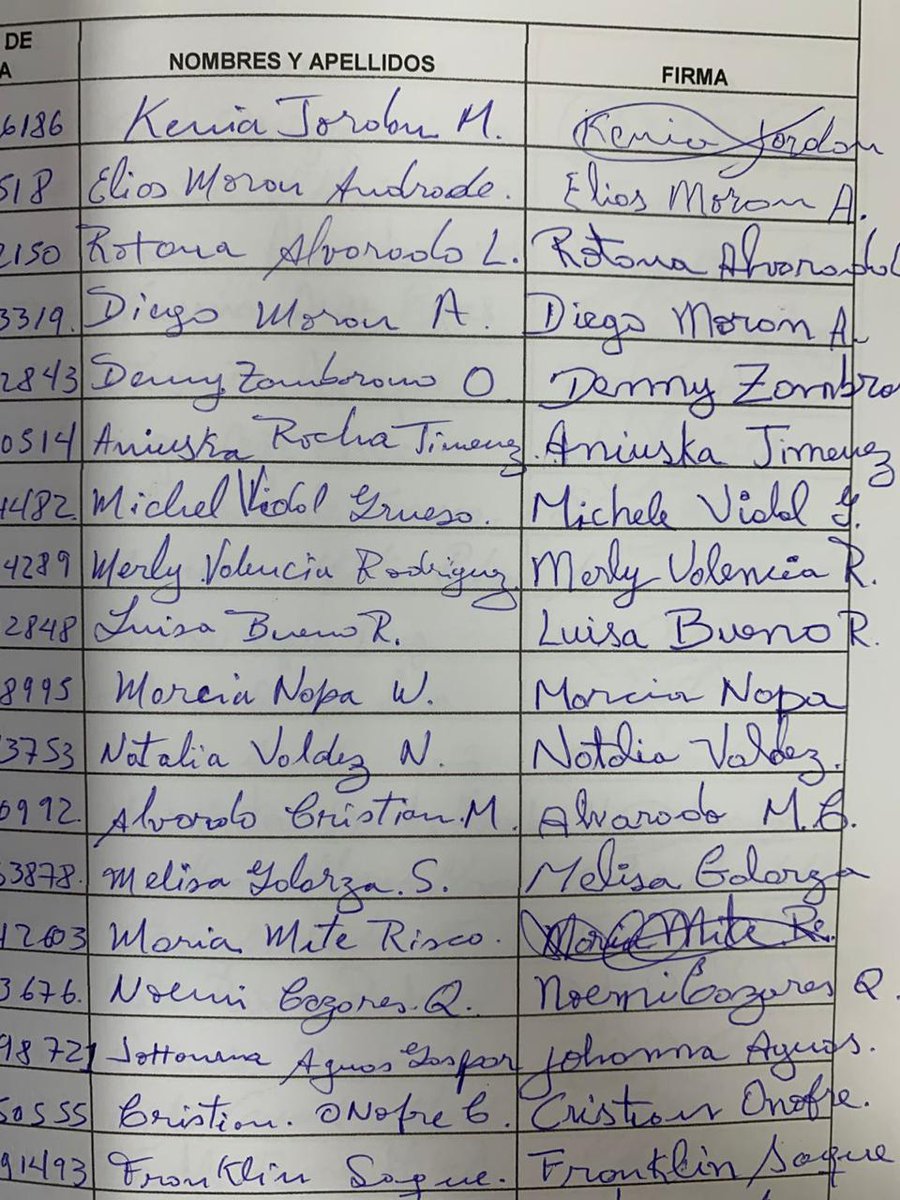 DE
A NOMBRES Y APELLIDOS FIRMA
6186 Kenia Jordan M. Kenia Jordan
518 Elios Moron Andrade. Elios Moron A.
2150 Rotona Alvarado L. Rotona Alvarado L
3319. Diego Moron A. Diego Moron A.
2843 Denny Zambrano O Denny Zambra
0514 Aniuska Rocha Jimenez. Aniuska Jimenez
1482. Michel Vidal Grueso. Michele Vidal G.
4289 Merly Valencia Rodriguez Merly Valencia R.
2848 Luisa Bueno R. Luisa Bueno R.
8995 Marcia Nopa W. Marcia Nopa
3753 Natalia Valdez N. Natalia Valdez.
6992. Alvardo Cristian. M. Alvarado M. C.
53878. Melisa Galarza. S. Melisa Galarza
12603 Maria Mite Risco. Maria Mite
3676. Noemi Cazares. Q. Noemi Cazares Q.
98721 Johanna Aguas Gaspar Johanna Aguas.
50555 Cristian. Onofre C. Cristian Onofre.
91493 Franklin Saque. Franklin Saque